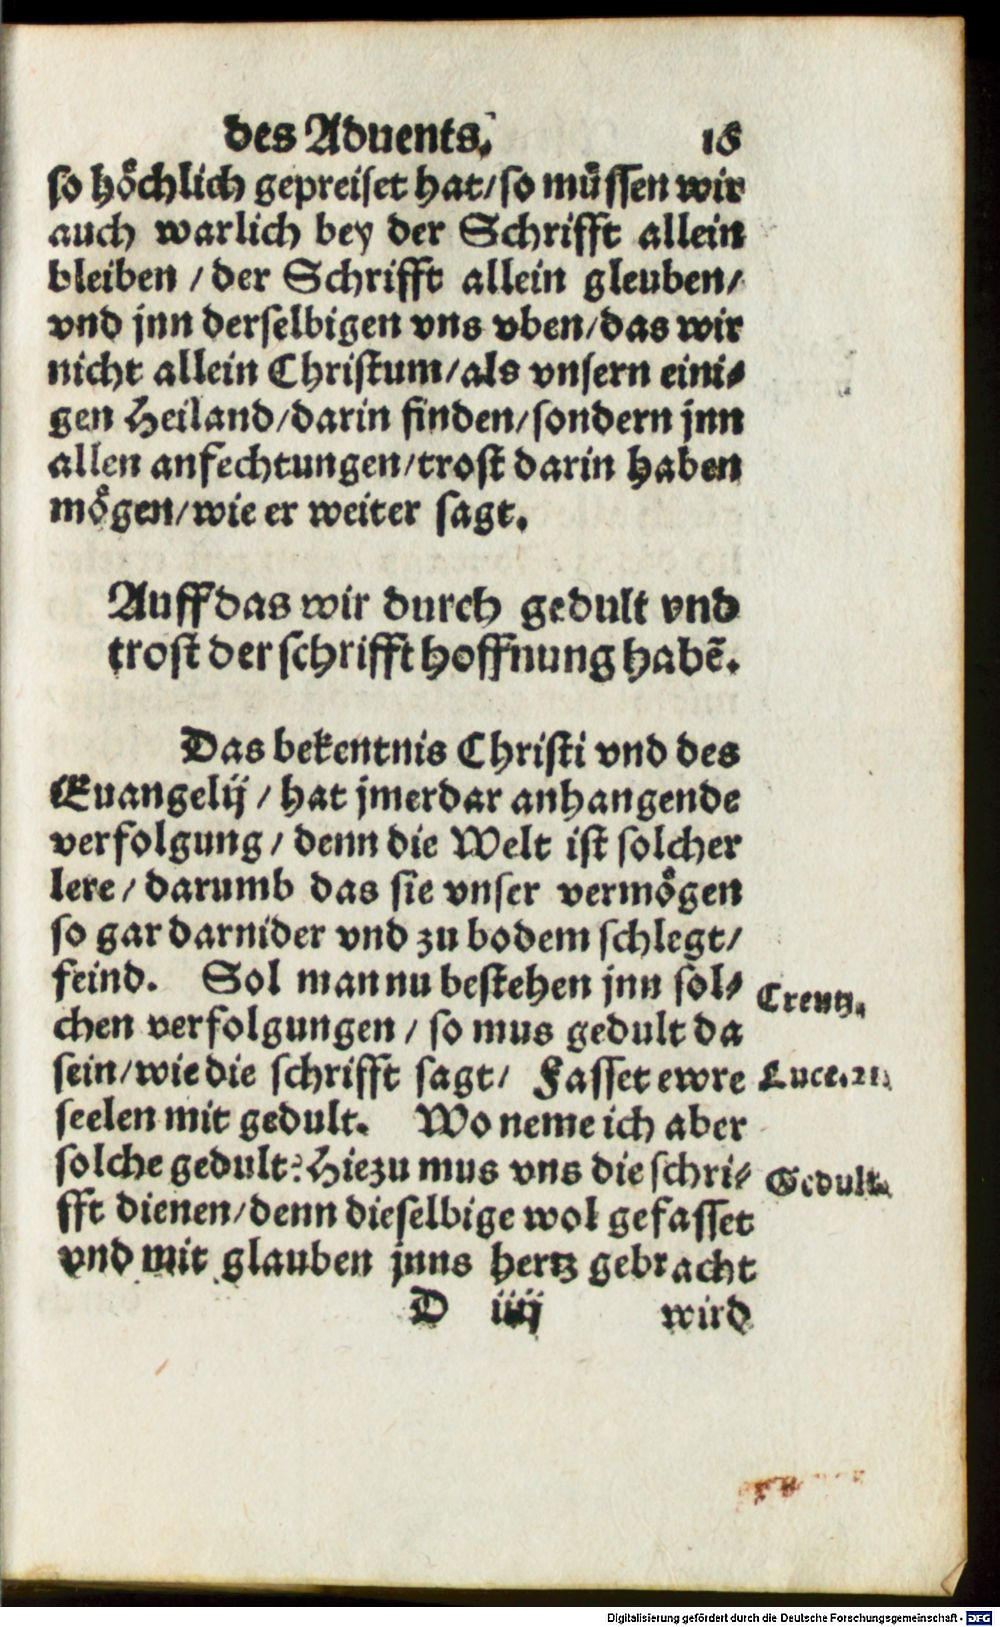 des Aduents. 16
so hoͤchlich gepreiset hat/so muͤssen wir
auch warlich bey der Schrifft allein
bleiben /der Schrifft allein gleuben/
vnd jnn derselbigen vns vben/das wir
nicht allein Christum/als vnsern eini⸗
gen Heiland/darin finden/sondern jnn
allen anfechtungen/trost darin haben
moͤgen/wie er weiter sagt.
Auff das wir durch gedult vnd
trost der schrifft hoffnung habẽ.
Das bekentnis Christi vnd des
Euangelij / hat jmerdar anhangende
verfolgung/ denn die Welt ist solcher
lere/ darumb das sie vnser vermoͤgen
so gar darnider vnd zu bodem schlegt/
feind. Sol man nu bestehen jnn sol⸗
Creutz.
chen verfolgungen / so mus gedult da
sein/wie die schrifft sagt/ Fasset ewre
Luce. 21.
seelen mit gedult. Wo neme ich aber
solche gedult? Hiezu mus vns die schri⸗
Gedult.
fft dienen/denn dieselbige wol gefasset
vnd mit glauben jnns hertz gebracht
D iiij wird
Digitalisierung gefördert durch die Deutsche Forschungsgemeinschaft - DFG